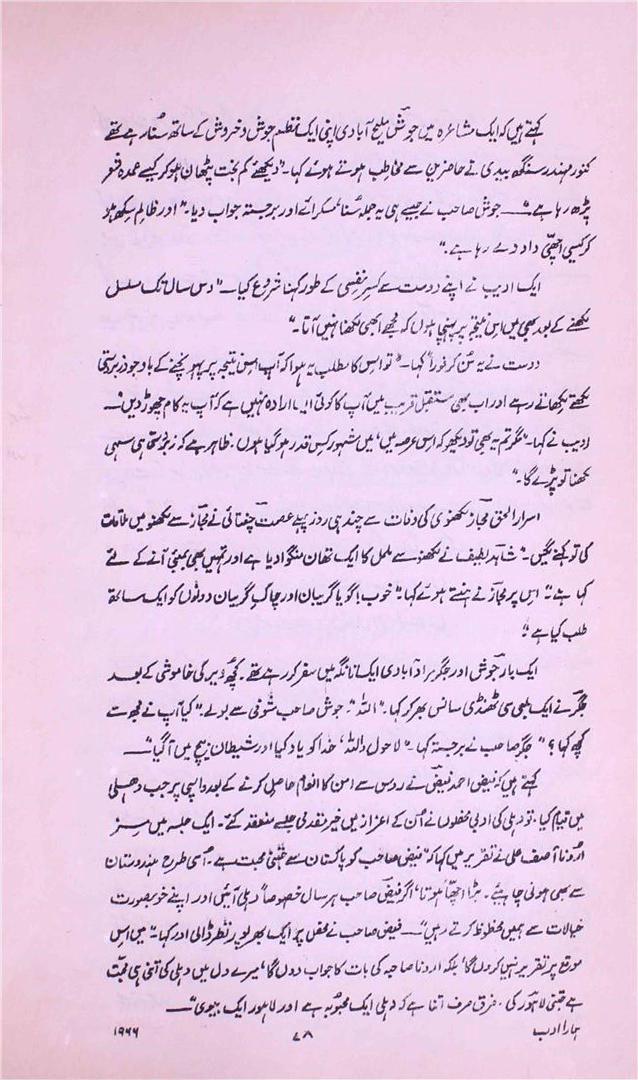 کہتے ہیں کہ ایک مشاعرہ میں جوشؔ ملیح آبادی اپنی ایک نظم جوش و خروش کے ساتھ سنا رہے تھے
کنور مہندر سنگھ بیدی نے حاضرین سے مخاطب ہوتے ہوئے کہا۔ "دیکھئے کم بخت پٹھان ہو کر کیسے عمدہ شعر
پڑھ رہا ہے"۔ جوش صاحب نے جیسے ہی یہ جملہ سُنا مسکرائے اور برجستہ جواب دیا۔ "اور ظالم سکھ ہو
کر کیسی اچھی داد دے رہا ہے۔"
ایک ادیب نے اپنے دوست سے کسرِ نفسی کے طور کہنا شروع کیا۔ "دس سال تک مسلسل
لکھنے کے بعد بھی میں اس نتیجہ پر پہنچا ہوں کہ مجھے ابھی لکھنا نہیں آتا۔"
دوست نے یہ سُن کر فوراً کہا۔ "تو اس کا مطلب یہ ہوا کہ آپ اس نتیجہ پر پہونچنے کے باوجود زبردستی
لکھتے لکھاتے رہے اور اب بھی مستقبل قریب میں آپ کا کوئی ایسا ارادہ نہیں ہے کہ آپ یہ کام چھوڑ دیں"۔
ادیب نے کہا۔ "مگر تم یہ بھی تو دیکھو کہ اس عرصہ میں، میں مشہور کس قدر ہو گیا ہوں۔ ظاہر ہے کہ زبردستی ہی سہی
لکھنا تو پڑے گا۔"
اسرار الحق مجاز لکھنوی کی وفات سے چند ہی روز پہلے عصمت چغتائی نے مجازؔ سے لکھنو میں ملاقات
کی تو کہنے لگیں۔ "شاہد لطیف نے لکھنو سے ململ کا ایک تھان منگوا دیا ہے اور تمہیں بھی بمبئی آنے کے لئے
کہا ہے"۔ اس پر مجازؔ نے ہنستے ہوئے کہا۔ "خوب! گویا گریبان اور چاکِ گریبان دونوں کو ایک ساتھ
طلب کیا ہے"۔
ایک بار جوشؔ اور جگر مرادآبادی ایک تانگہ میں سفر کر رہے تھے۔ کچھ دیر کی خاموشی کے بعد
جگرؔ نے ایک لمبی سی ٹھنڈی سانس بھر کر کہا۔ "اللہ"۔ جوش صاحب شوخی سے بولے۔ "کیا آپ نے مجھ سے
کچھ کہا؟" جگرؔ صاحب نے برجستہ کہا۔ "لا حول واللہ، خدا کو یاد کیا اور شیطان بیچ میں آ گیا"۔
کہتے ہیں کہ فیض احمد فیضؔ نے روس سے امن کا انعام حاصل کرنے کے بعد واپسی پر جب دھلی
میں قیام کیا، تو دہلی کی ادبی محفلوں نے اُن کے اعزاز میں خیر مقدمی جلسے منعقد کئے۔ ایک جلسہ میں مسز
ارونا آصف علی نے تقریر میں کہا کہ "فیض صاحب کو پاکستان سے جتنی محبت ہے۔ اُسی طرح ہندوستان
سے بھی ہونی چاہیئے۔ بڑا اچھا ہوتا، اگر فیضؔ صاحب ہر سال خصوصاً دہلی آئیں اور اپنے خوبصورت
خیالات سے ہمیں محظوظ کرتے رہیں"۔ فیض صاحب نے محفل پر ایک بھرپور نظر ڈالی اور کہا۔ "میں اس
موقع پر تقریر نہیں کروں گا، بلکہ ارونا صاحبہ کی بات کا جواب دوں گا، میرے دل میں دہلی کی اتنی ہی محبت
ہے جتنی لاہور کی۔ فرق صرف اتنا ہے کہ دہلی ایک محبوبہ ہے اور لاہور ایک بیوی"۔
ہمارا ادب
۷۸
۱۹۶۶